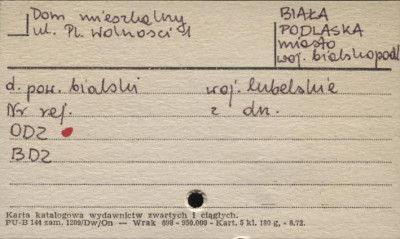 Dom mieszkalny
ul. Pl. Wolności 1
BIAŁA
PODLASKA
miasto
woj. bialskopodl
d. pow. bialski woj. lubelskie
Nr rej. z dn.
ODZ
BDZ
Karta katalogowa wydawnictw zwartych i ciągłych.
PU-B 144 zam. 1209/Dw/On — Wrak 698 - 950.000 - Kart. 5 kl. 180 g, - 8.72.